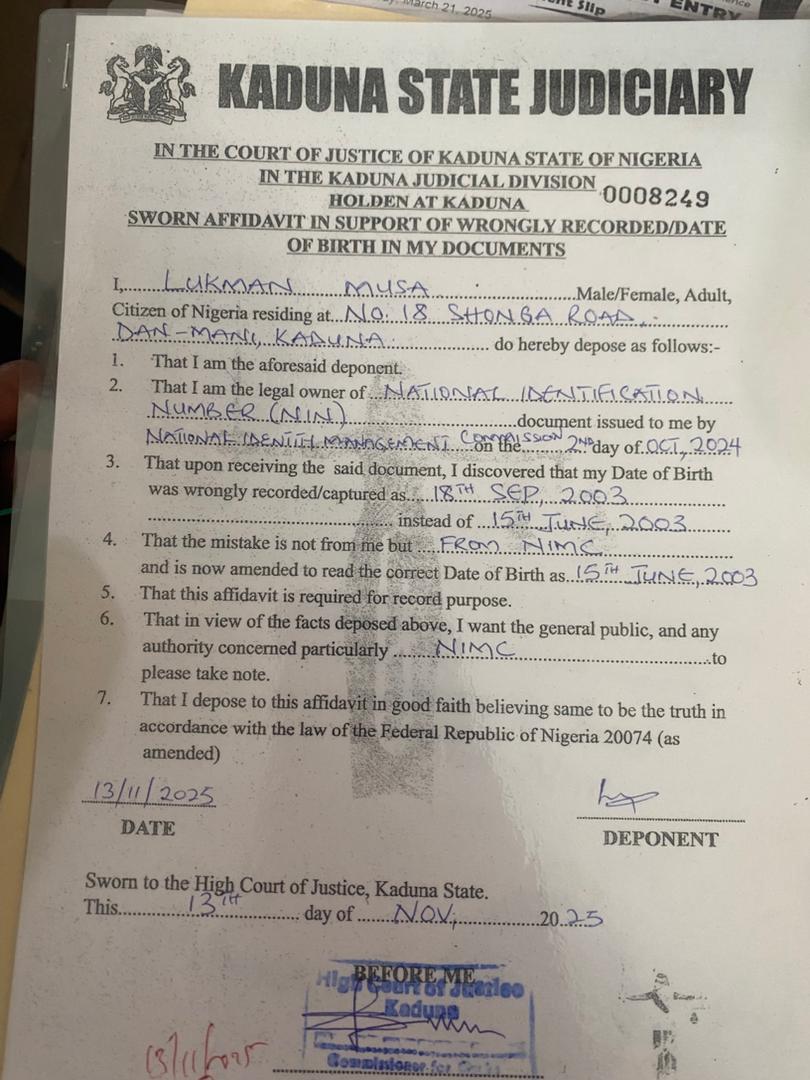 March 21, 2025
Slip
ENTRY
KADUNA STATE JUDICIARY
IN THE COURT OF JUSTICE OF KADUNA STATE OF NIGERIA
IN THE KADUNA JUDICIAL DIVISION
HOLDEN AT KADUNA
0008249
SWORN AFFIDAVIT IN SUPPORT OF WRONGLY RECORDED/DATE
OF BIRTH IN MY DOCUMENTS
I,......LUKMAN MUSA........................Male/Female, Adult,
Citizen of Nigeria residing at...NO. 18 SHONGA ROAD,............
DAN-MANI, KADUNA.................. do hereby depose as follows:-
1. That I am the aforesaid deponent.
2. That I am the legal owner of...NATIONAL IDENTIFICATION
NUMBER (NIN)..............................document issued to me by
NATIONAL IDENTITY MANAGEMENT COMMISSION on the........2ND day of OCT, 2024
3. That upon receiving the said document, I discovered that my Date of Birth
was wrongly recorded/captured as....18TH SEP, 2003................
............................................ instead of...15TH JUNE, 2003......
4. That the mistake is not from me but....FROM NIMC..................
and is now amended to read the correct Date of Birth as...15TH JUNE, 2003
5. That this affidavit is required for record purpose.
6. That in view of the facts deposed above, I want the general public, and any
authority concerned particularly .......NIMC...............................to
please take note.
7. That I depose to this affidavit in good faith believing same to be the truth in
accordance with the law of the Federal Republic of Nigeria 20074 (as
amended)
13/11/2025
DATE
DEPONENT
Sworn to the High Court of Justice, Kaduna State.
This............13TH.............. day of.......NOV,................2025
BEFORE ME
High Court of Justice
Kaduna
Commissioner for
13/11/2025